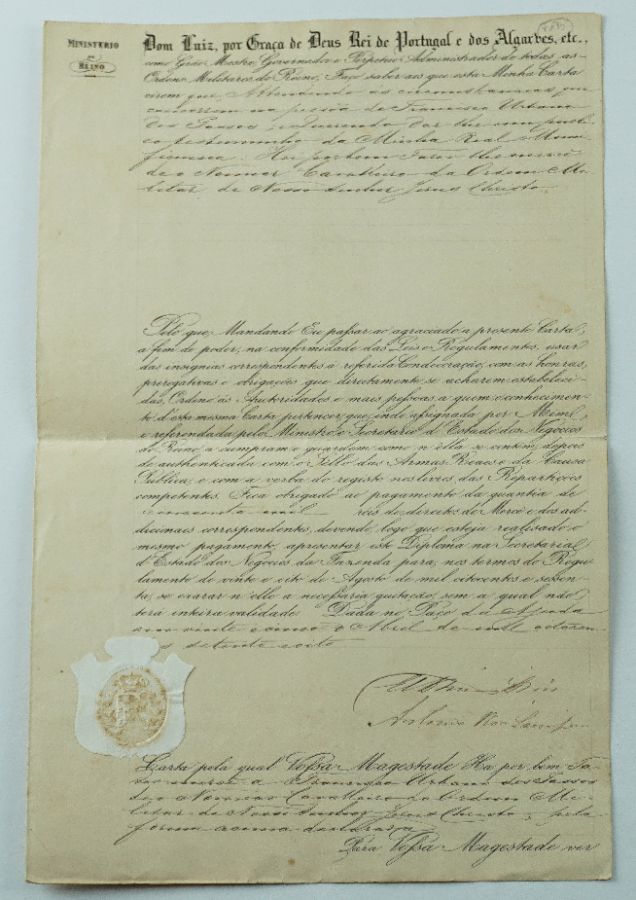 MINISTERIO
DO
REINO
Dom Luiz, por Graça de Deus Rei de Portugal e dos Algarves, etc.,
como Grão Mestre, Governador e Perpetuo Administrador de todas as
Ordens Militares do Reino, Faço saber aos que esta Minha Carta
virem que, Attendendo ás circumstancias que
concorrem na pessoa de Francisco Urbano
dos Passos; e Querendo dar lhe um publi-
co testemunho da Minha Real e Muni-
ficencia: Hei por bem Fazer lhe mercê
de o Nomear Cavalleiro da Ordem Mi-
litar de Nosso Senhor Jesus Christo.
Pelo que, Mandando Eu passar ao agraciado a presente Carta,
a fim de poder, na conformidade das Leis e Regulamentos, usar
das insignias correspondentes á referida Condecoração, com as honras,
prerogativas e obrigações que directamente se acharem estabeleci-
das, Ordeno ás Autoridades e mais pessoas a quem o conhecimen-
to d'esta mesma Carta pertencer, que, indo assignada por Mim
e referendada pelo Ministro e Secretario d'Estado dos Negocios
do Reino, a cumpram e guardem como n'ella se contém, depois
de authenticada com o Sello das Armas Reaes e da Causa
Publica, e com a verba do registo nos livros das Repartições
competentes. Fica obrigado ao pagamento da quantia de
mil reis de direitos de Mercê e dos ad-
dicionaes correspondentes, devendo, logo que esteja realisado o
mesmo pagamento, apresentar este Diploma na Secretaria
d'Estado dos Negocios da Fazenda para, nos termos do Regu-
lamento de vinte e oito de Agosto de mil oitocentos e sessen-
ta, se exarar n'elle a necessaria quitação, sem a qual não
terá inteira validade. Dada no Paço da Ajuda
em vinte e cinco de Abril de mil oitocen-
tos setenta e oito
El Rei
Antonio Roiz Sampaio
Carta pela qual Vossa Magestade Ha por bem Fa-
zer mercê a Francisco Urbano dos Passos
de o Nomear Cavalleiro da Ordem Mi-
litar de Nosso Senhor Jesus Christo, pela
fórma acima declarada
Para Vossa Magestade ver